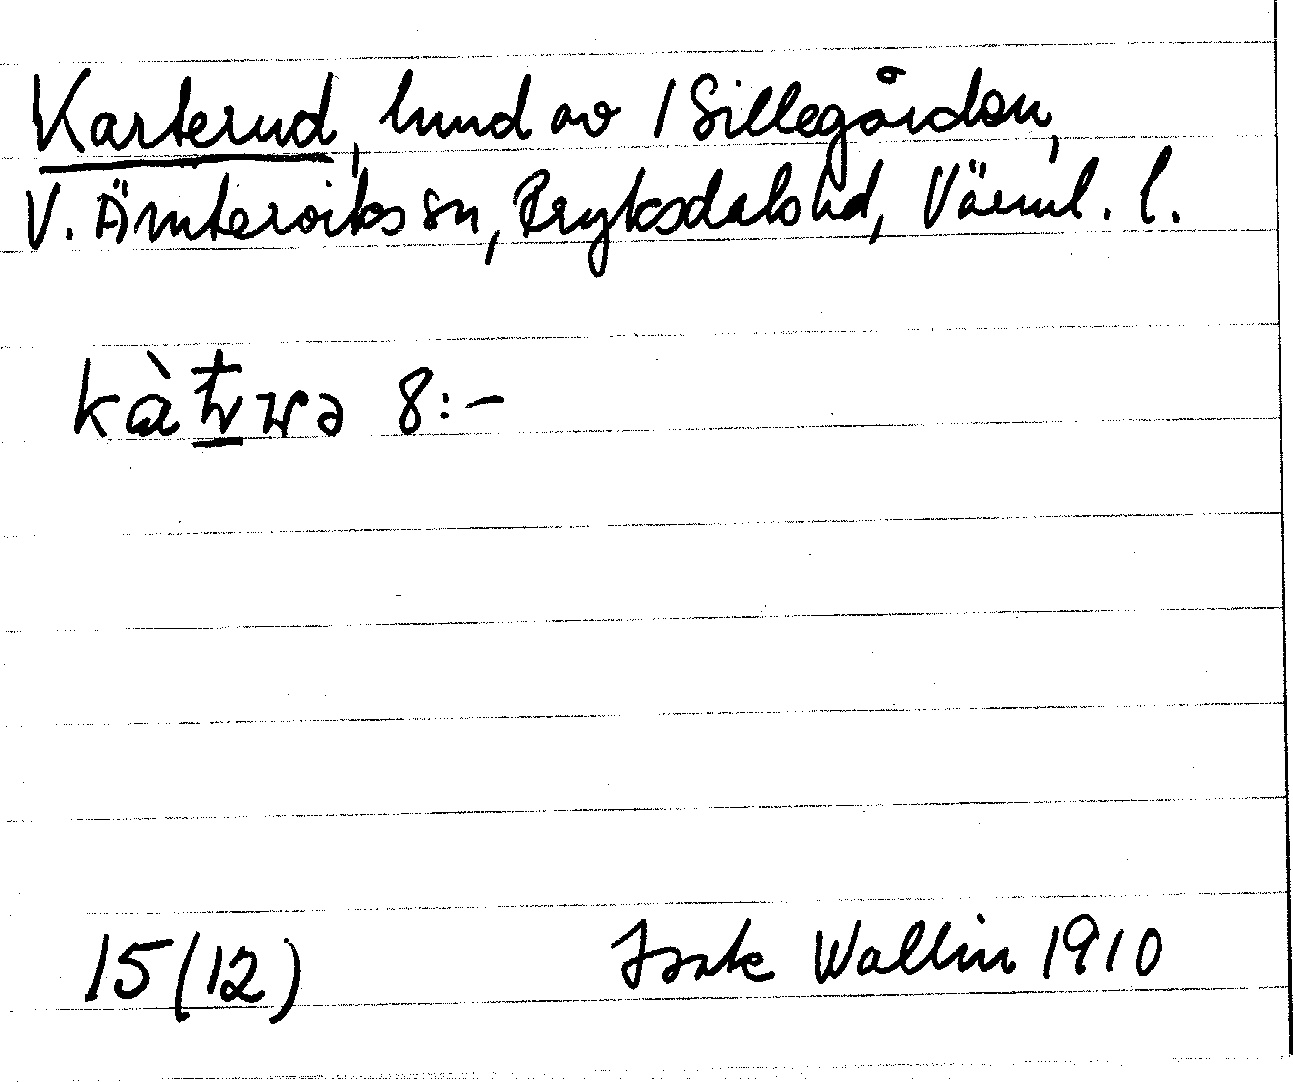 Karterud, hmd av 1 Sillegården,
V. Ämterviks sn, Fryksdals hd, Värml. l.
8:-
15(12) Isak Wallin 1910